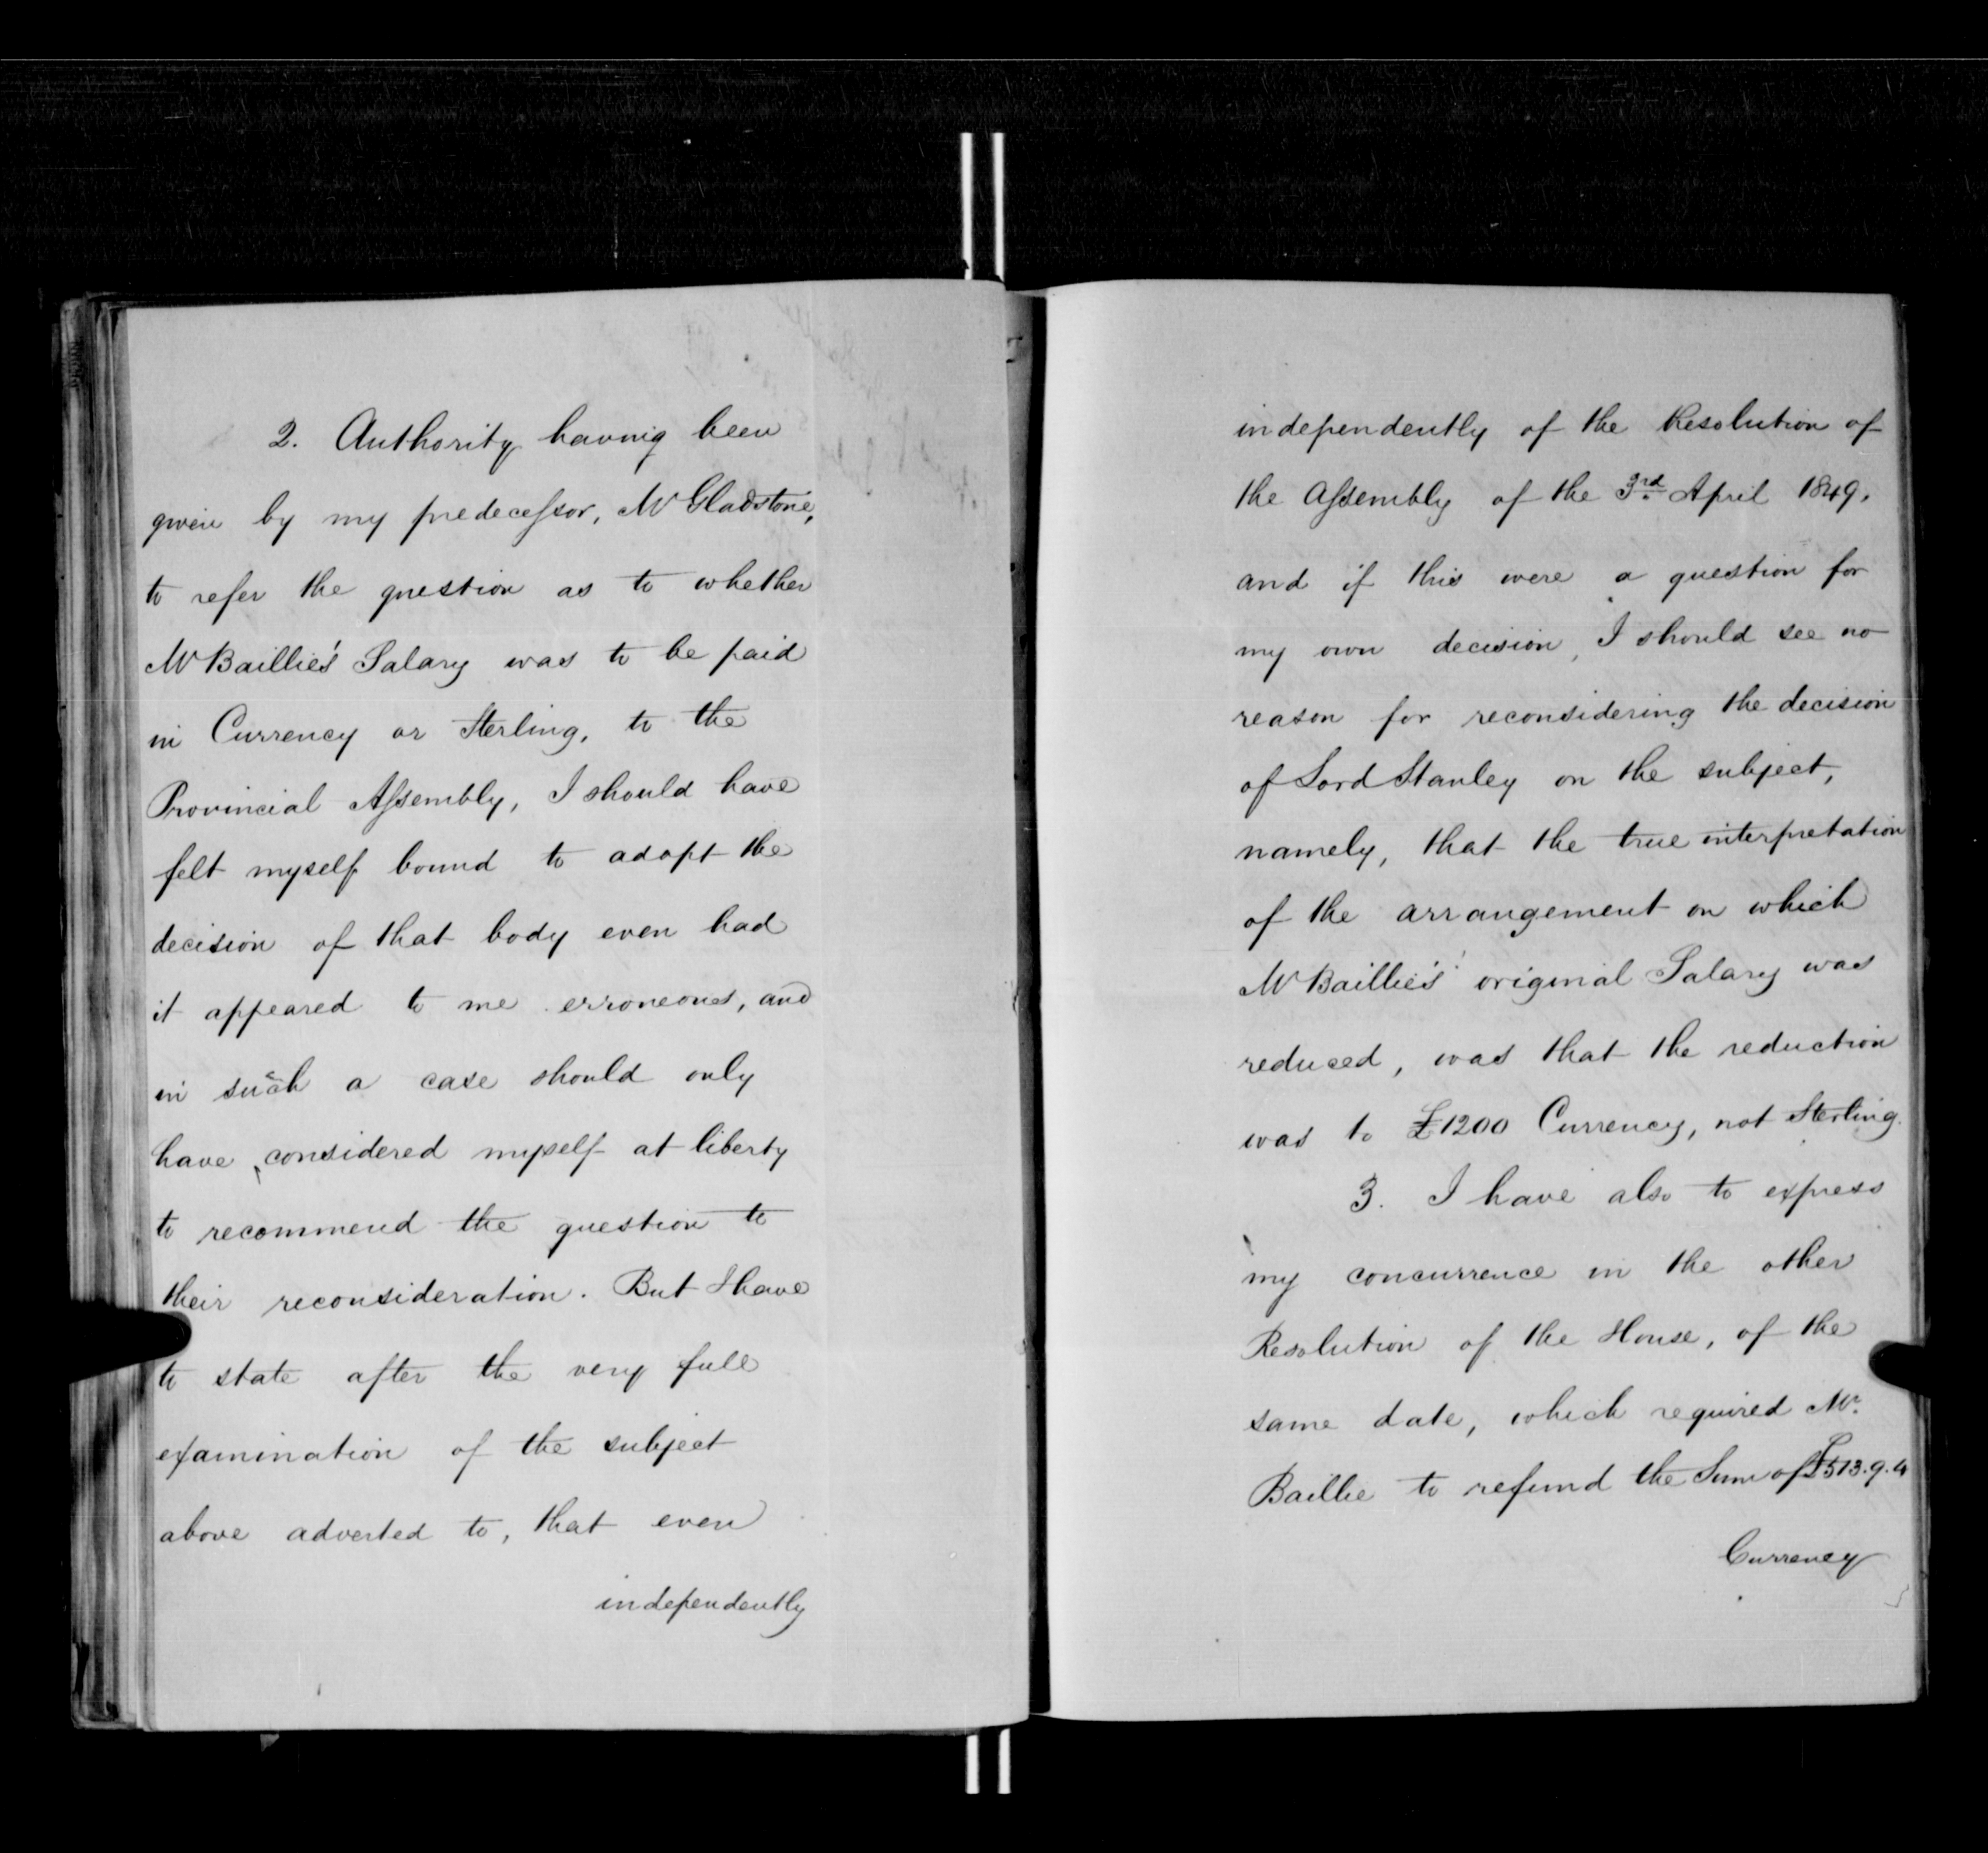 2. Authority having been
given by my predecessor, Mr Gladstone,
to refer the question as to whether
Mr Baillie's Salary was to be paid
in Currency or Sterling, to the
Provincial Assembly, I should have
felt myself bound to adopt the
decision of that body even had
it appeared to me erroneous, and
in such a case should only
have considered myself at liberty
to recommend the question to
their reconsideration. But I have
to state after the very full
examination of the subject
above adverted to, that even
independently
independently of the Resolution of
the Assembly of the 3rd April 1849.
and if this were a question for
my own decision, I should see no
reason for reconsidering the decision
of Lord Stanley on the subject,
namely, that the true interpretation
of the arrangement on which
Mr Baillie's original Salary was
reduced, was that the reduction
was to £1200 Currency, not Sterling.
3. I have also to express
my concurrence in the other
Resolution of the House, of the
same date, which required Mr.
Baillie to refund the Sum of £513.9.4
Currency